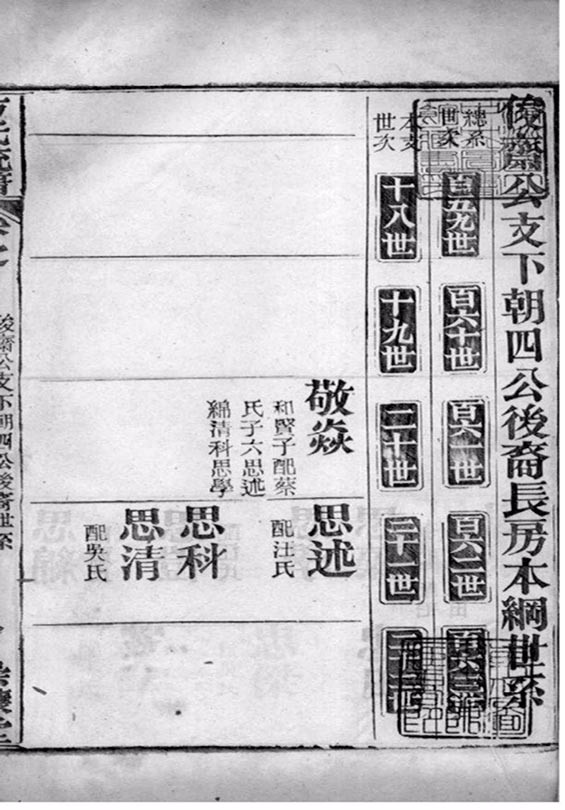 俊齋公支下朝四公後裔長房本綱世系
總系世次
百五九世
百六十世
百六一世
百六二世
本支世次
十八世
十九世
二十世
二十一世
敬焱
和賢子配蔡
氏子六思述
綿清科思學
思述
配汪氏
思科
思清
配吳氏
俊齋公支下朝四公後裔世系